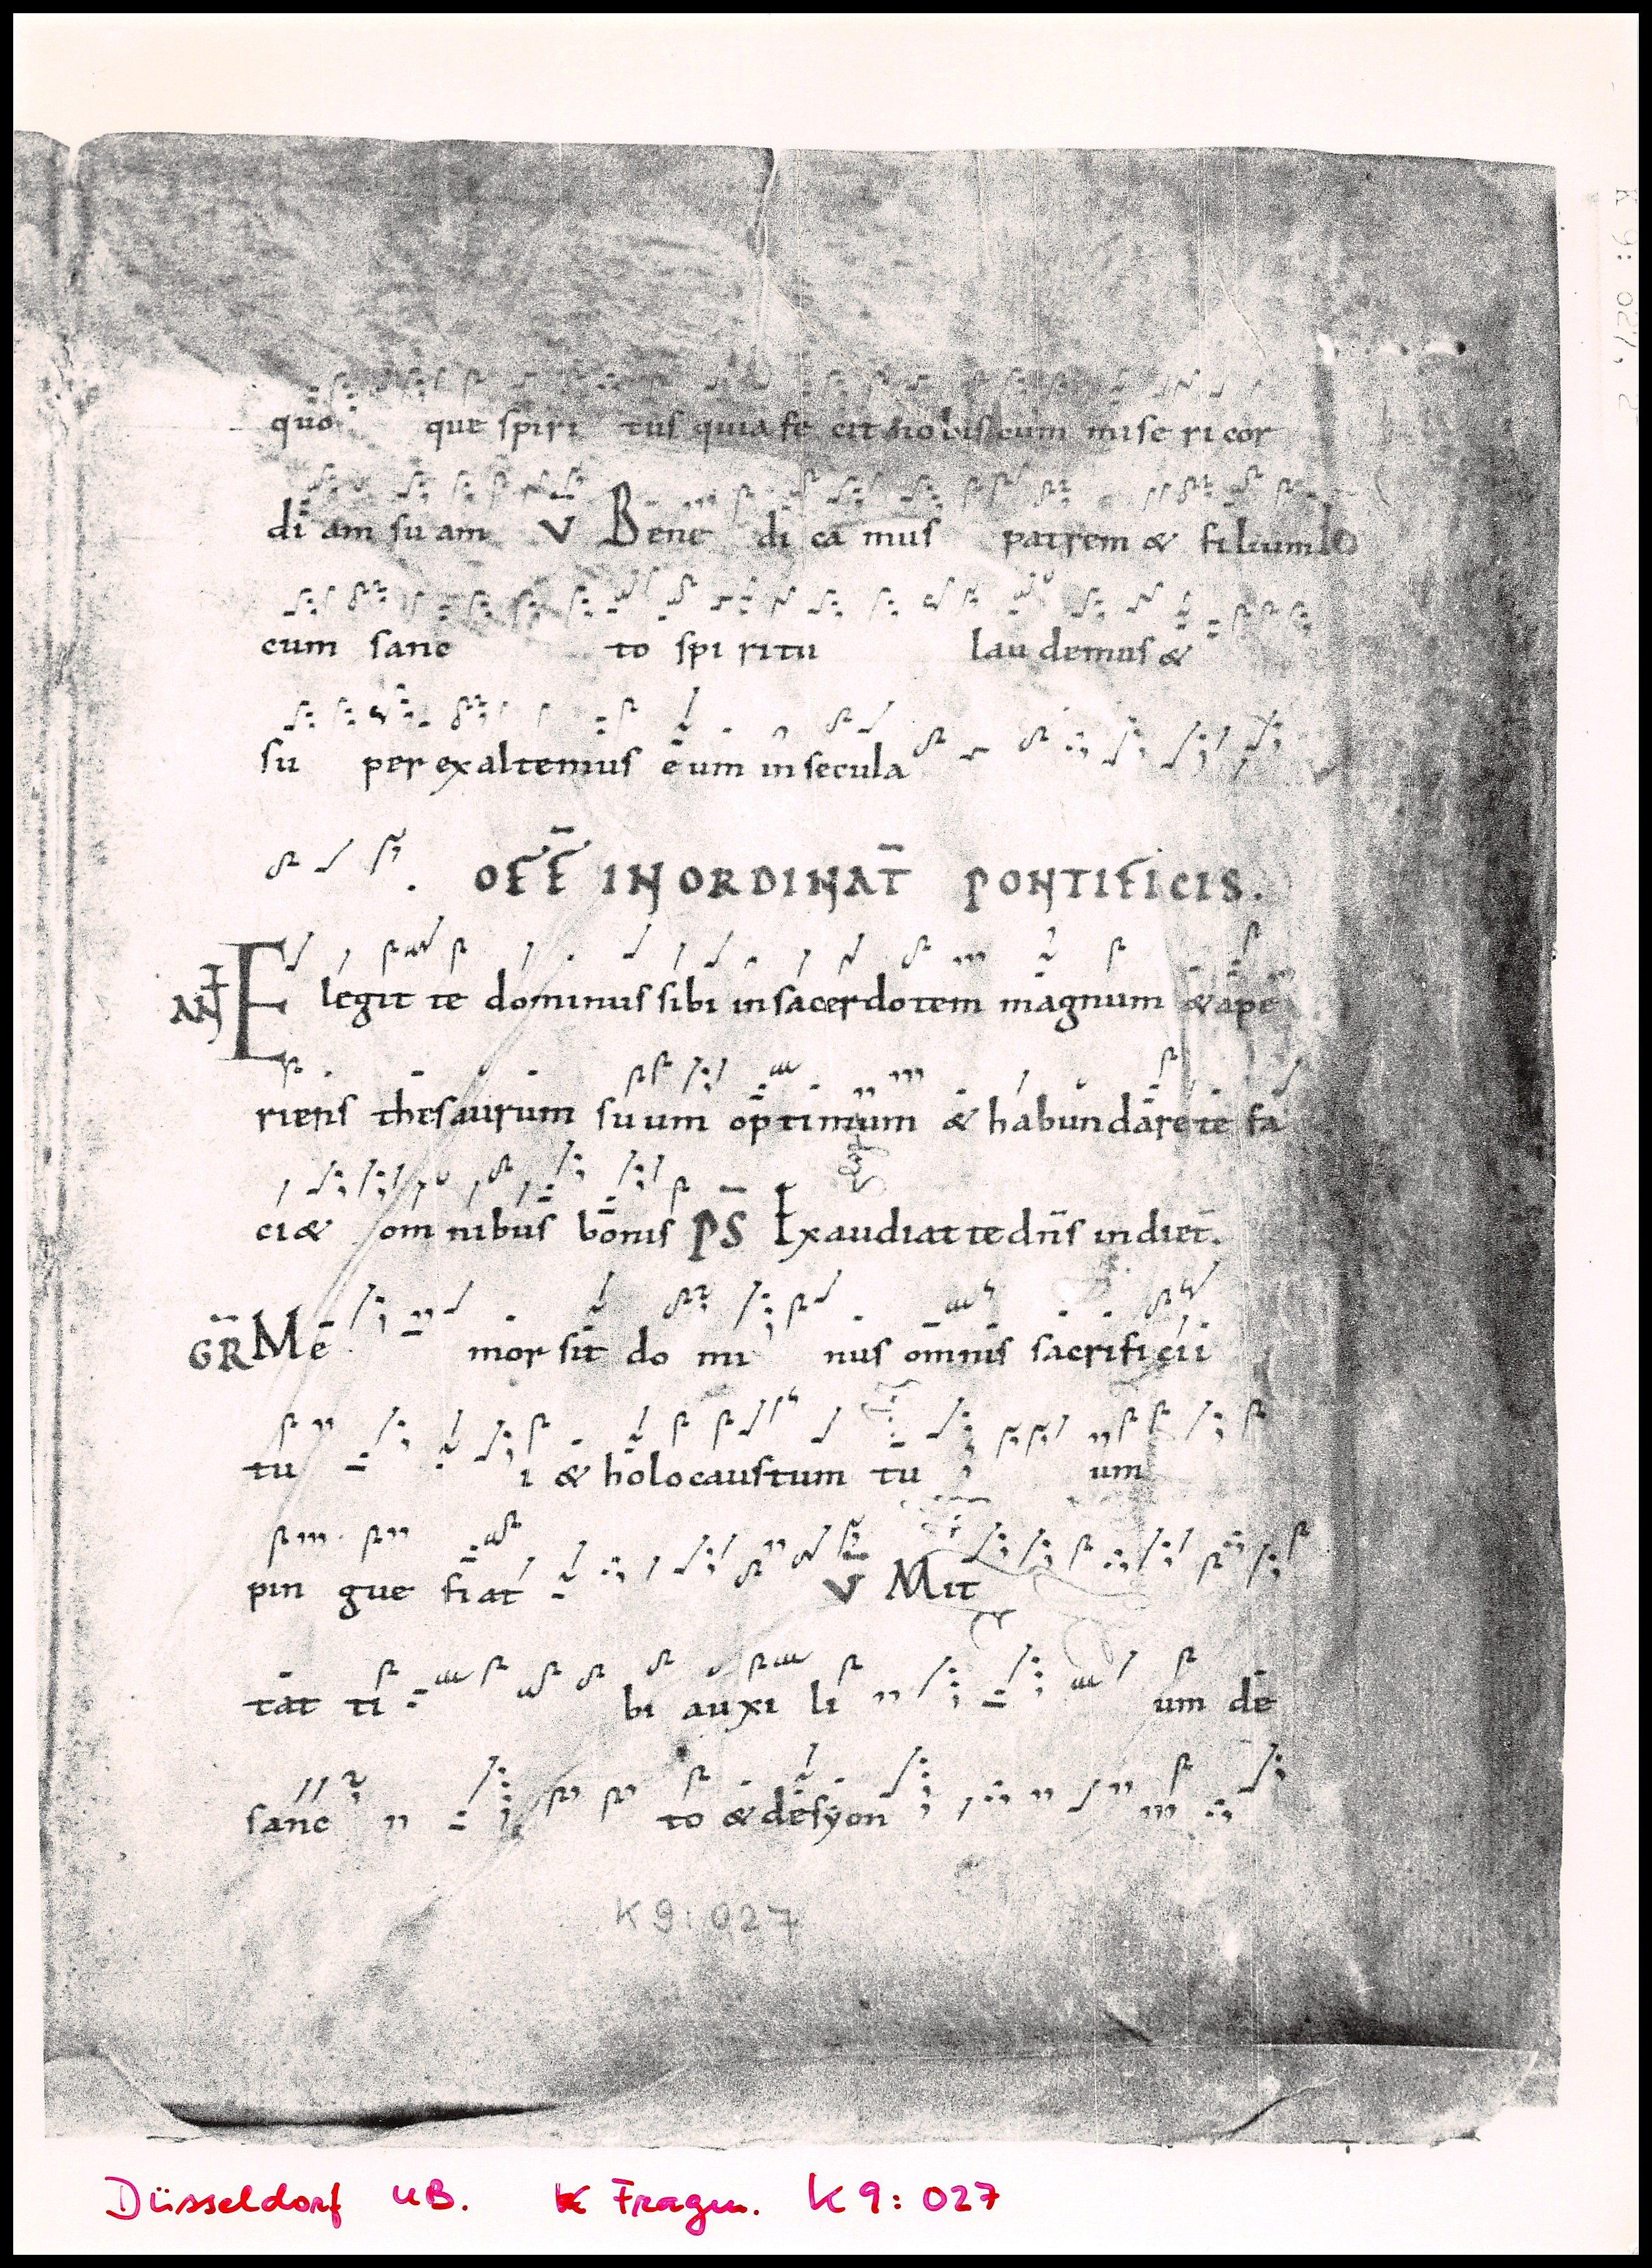 quo que spiri tus quia fe cit nobiscum mise ri cor
di am su am V Bene di ca mus patrem & filium lo
cum sanc to spi ritu lau demus &
su per exaltemus eum in secula
OFF̄ IN ORDINAT̄ PONTIFICIS.
ANT Elegit te dominus sibi in sacerdotem magnum & ape
riens thesaurum suum optimum & habundare te fa
ci& om nibus bonis PS̄ Exaudiat te dn̄s in die t̄.
GR̄ Me mor sit do mi nus omnis sacrificii
tu i & holocaustum tu um
pin gue fiat V Mit
tat ti bi auxi li um de
sanc to & desyon
K 9:027
Düsseldorf UB. K Fragm. K 9:027
K 9: 027, 2